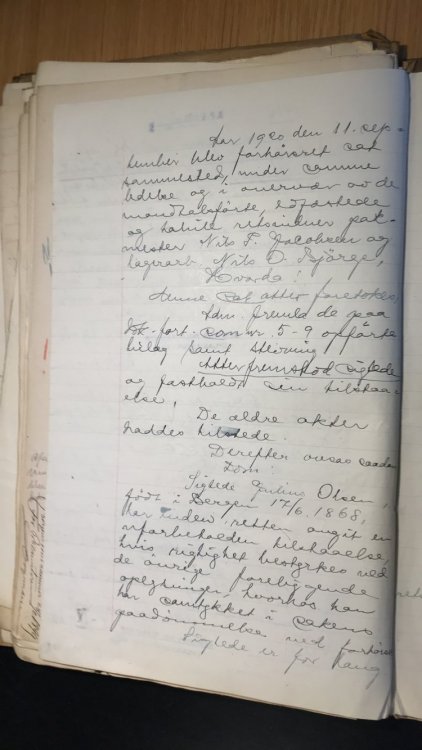 Aar 1920 den 11. sep-
tember blev forhørsret sat
sammesteds, under samme
ledelse og i overvær av de
mandtalsførte, edfæstede
og habile retsvidner pak-
mester Nils T. Jacobsen og
lagerarb. Nils O. Bjørge
Hvorda:
Denne sak atter foretokes,
Adm. fremla de paa
dok.fort. som nr 5-9 opførte
bilag samt stevning
Atter fremstod siglede
og fastholdt sin tilstaa-
else.
De ældre akter
haddes tilstede.
Derefter avsas saadan
Dom:
Siglede Julius Olsen,
født i Bergen 17/6 1868,
har inden retten avgit en
uforbeholden tilstaaelse,
hvis rigtighet bestyrkes ved
de øvrige foreliggende
oplysninger, hvorhos han
har samtykket i sakens
paadømmelse ved forhørsret
Siglede er før bang